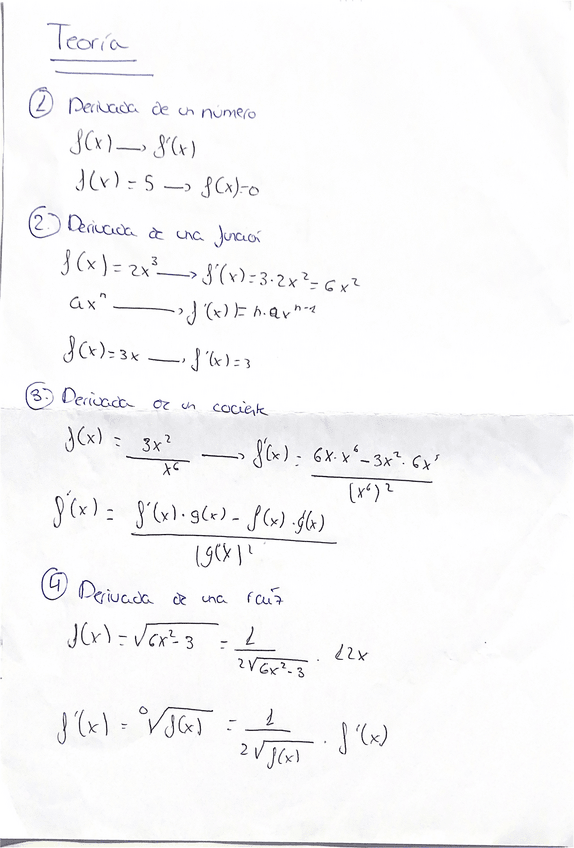 Teoría
1 Derivada de un número
f(x) → f'(x)
f(x) = 5 → f(x)=0
2. Derivada de una función
f(x) = 2x³ → f'(x) = 3·2x² = 6x²
axⁿ → f'(x) = n·axⁿ⁻¹
f(x) = 3x → f'(x) = 3
3. Derivada de un cociente
f(x) = 3x² / x⁶ → f'(x) = 6x·x⁶ − 3x²·6x⁵ / (x⁶)²
f'(x) = f'(x)·g(x) − f(x)·g'(x) / (g(x)²
4 Derivada de una raíz
f(x) = √(6x²−3) = 1 / 2√(6x²−3) · 12x
f'(x) = ⁰√f(x) = 1 / 2√f(x) · f'(x)